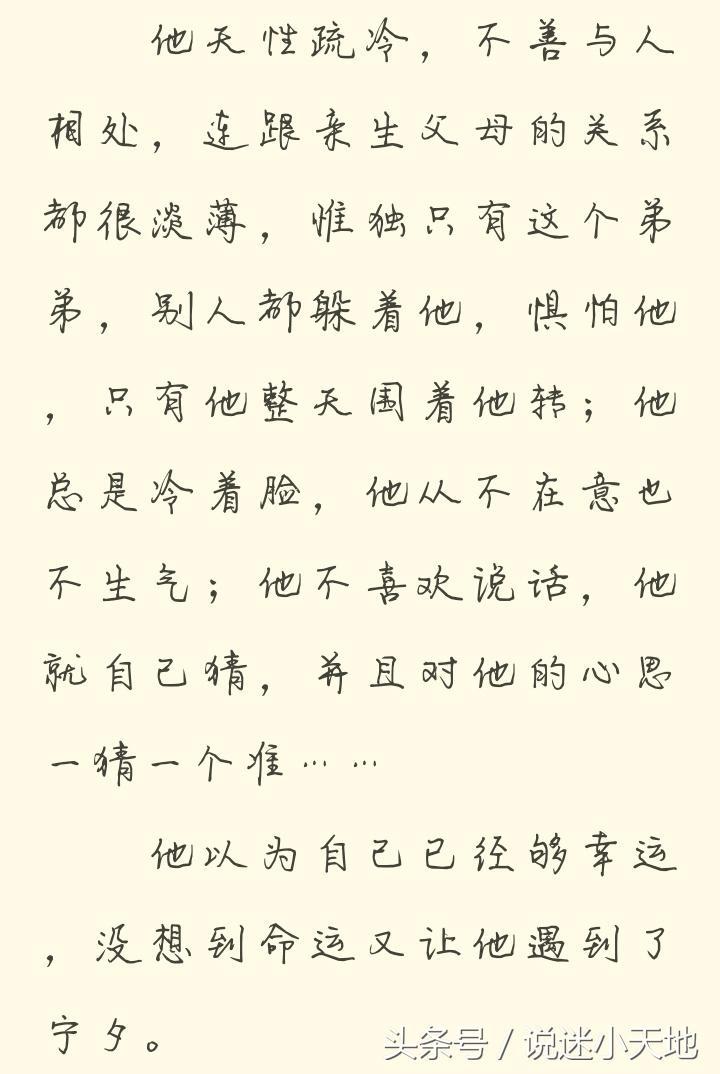 他天性疏冷，不善与人
相处，连跟亲生父母的关系
都很淡薄，惟独只有这个弟
弟，别人都躲着他，惧怕他
，只有他整天围着他转；他
总是冷着脸，他从不在意也
不生气；他不喜欢说话，他
就自己猜，并且对他的心思
一猜一个准……
他以为自己已经够幸运
，没想到命运又让他遇到了
宁夕。
头条号 / 说迷小天地